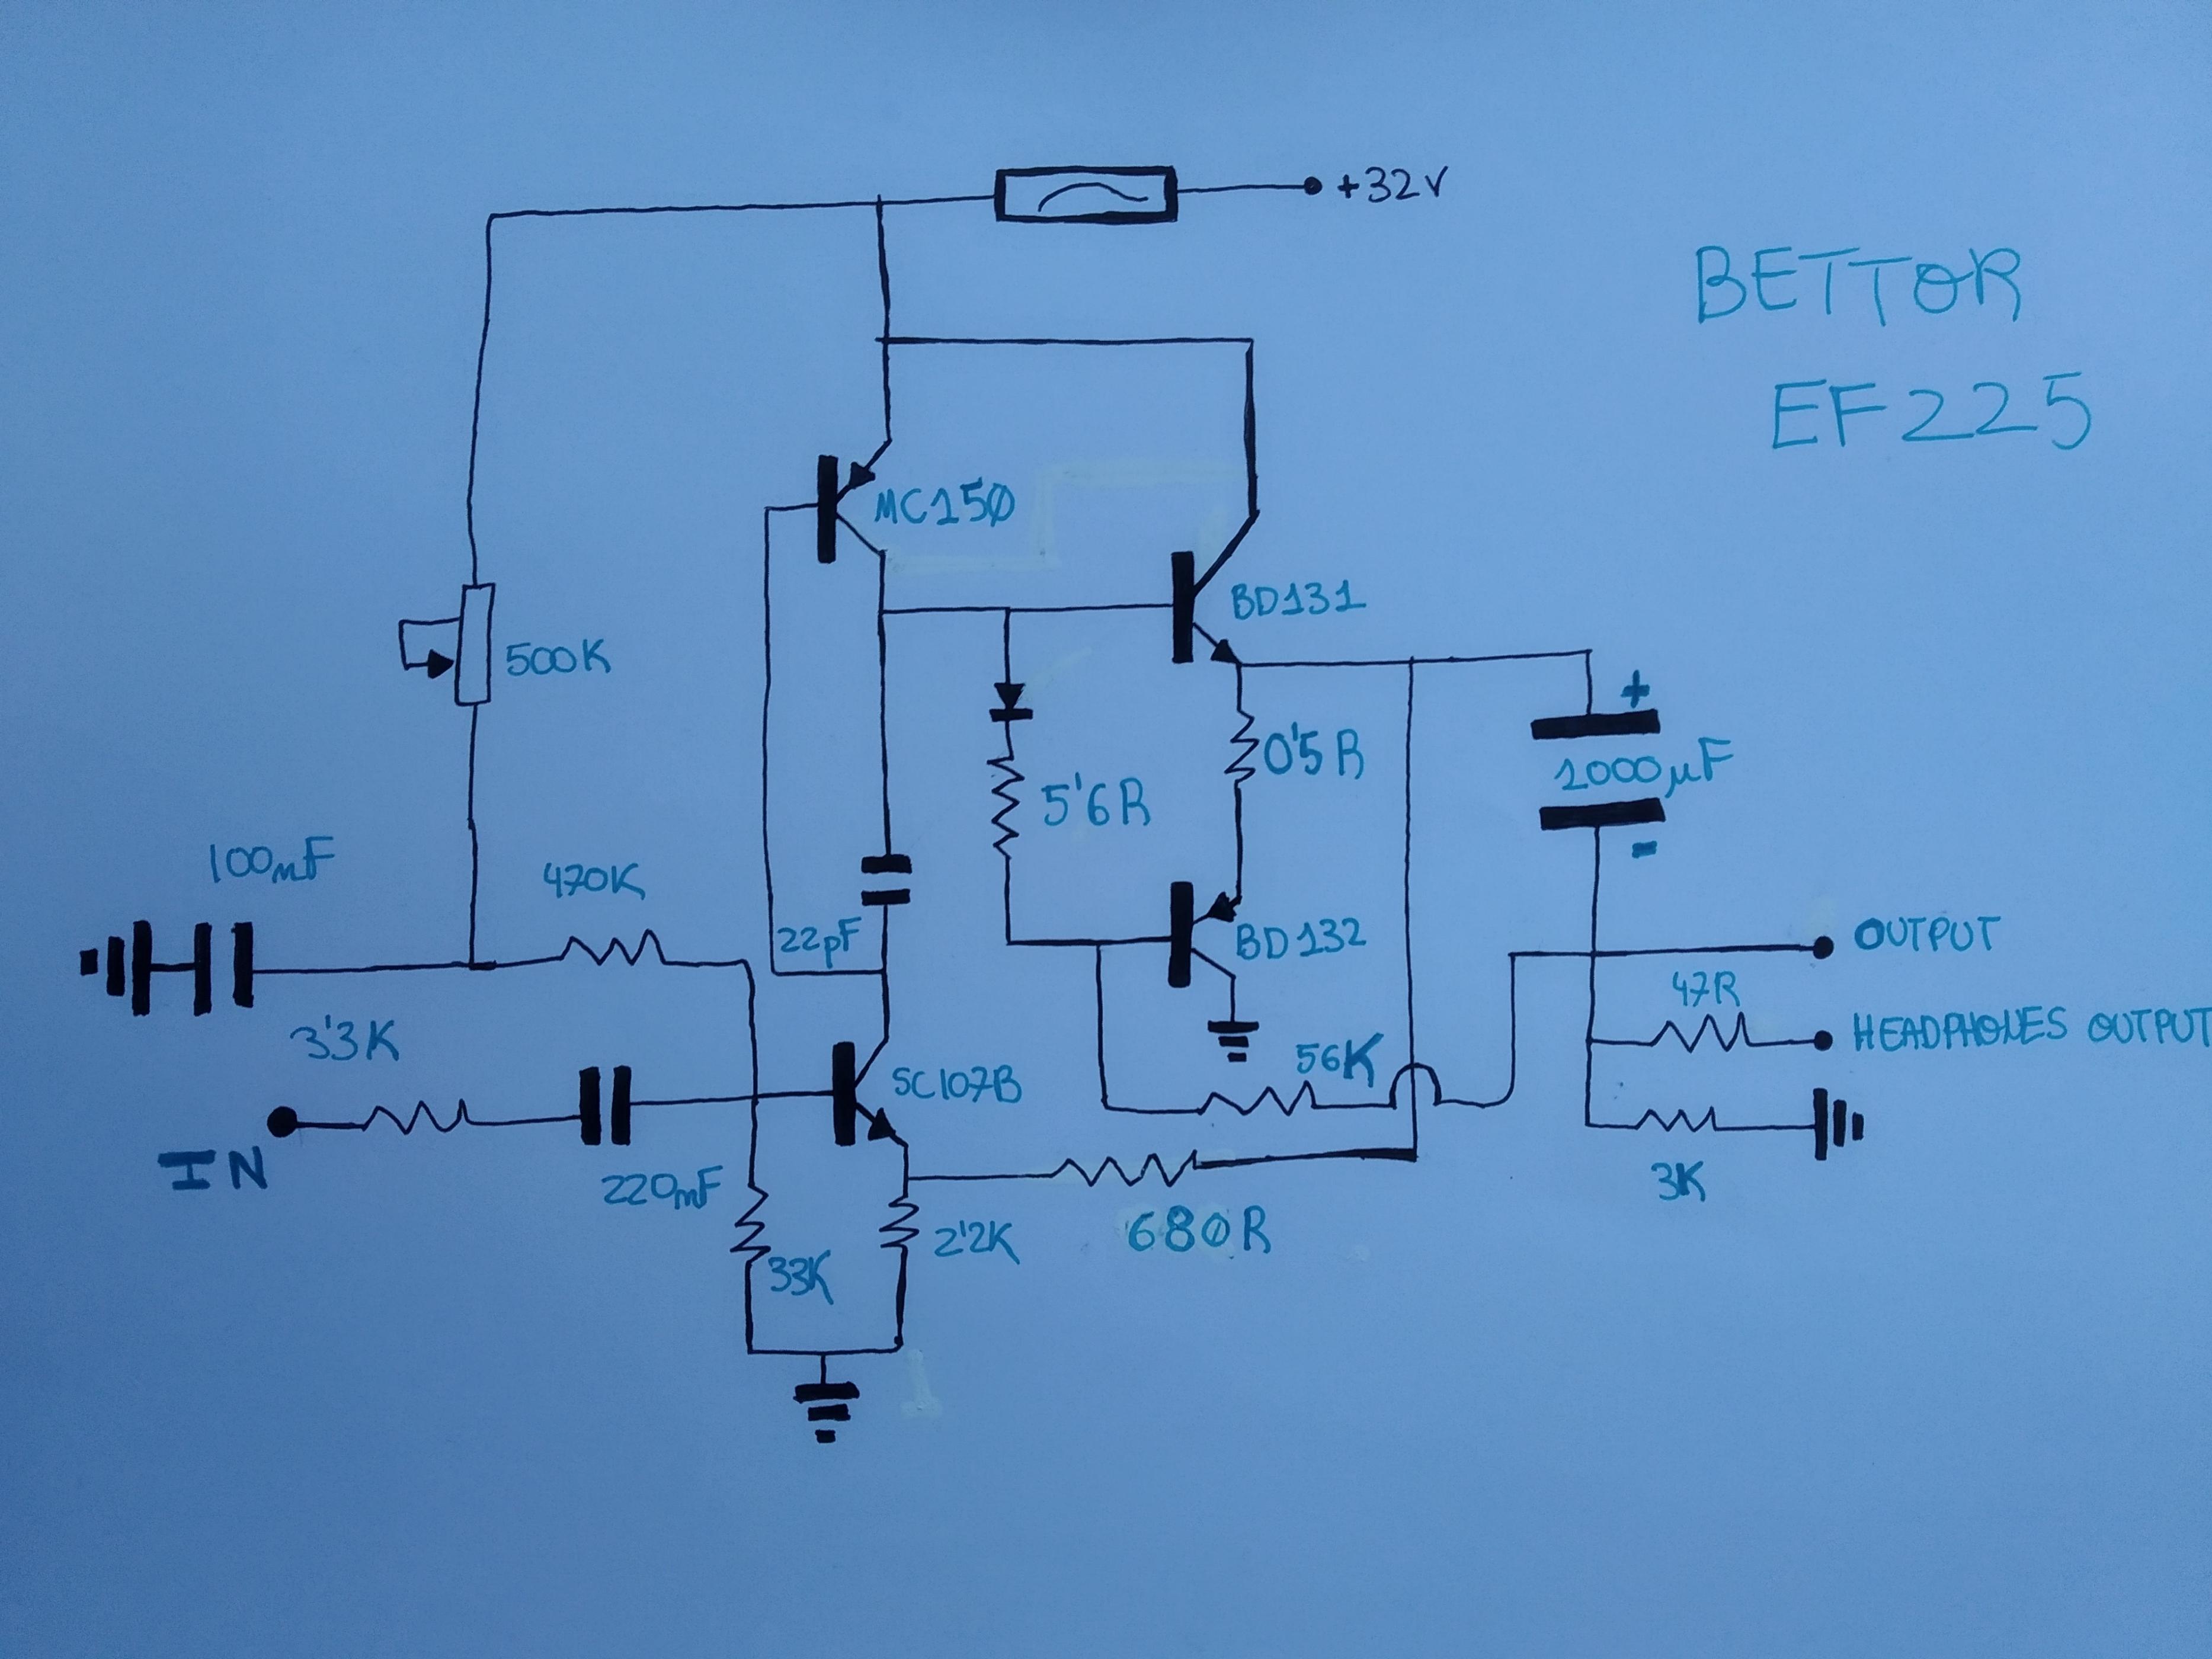 +32V
BETTOR
EF225
MC150
BD131
500K
+
0'5R
1000µF
5'6R
-
100nF
470K
22pF
BD132
OUTPUT
47R
HEADPHONES OUTPUT
3'3K
56K
SC107B
IN
220nF
3K
33K
2'2K
680R